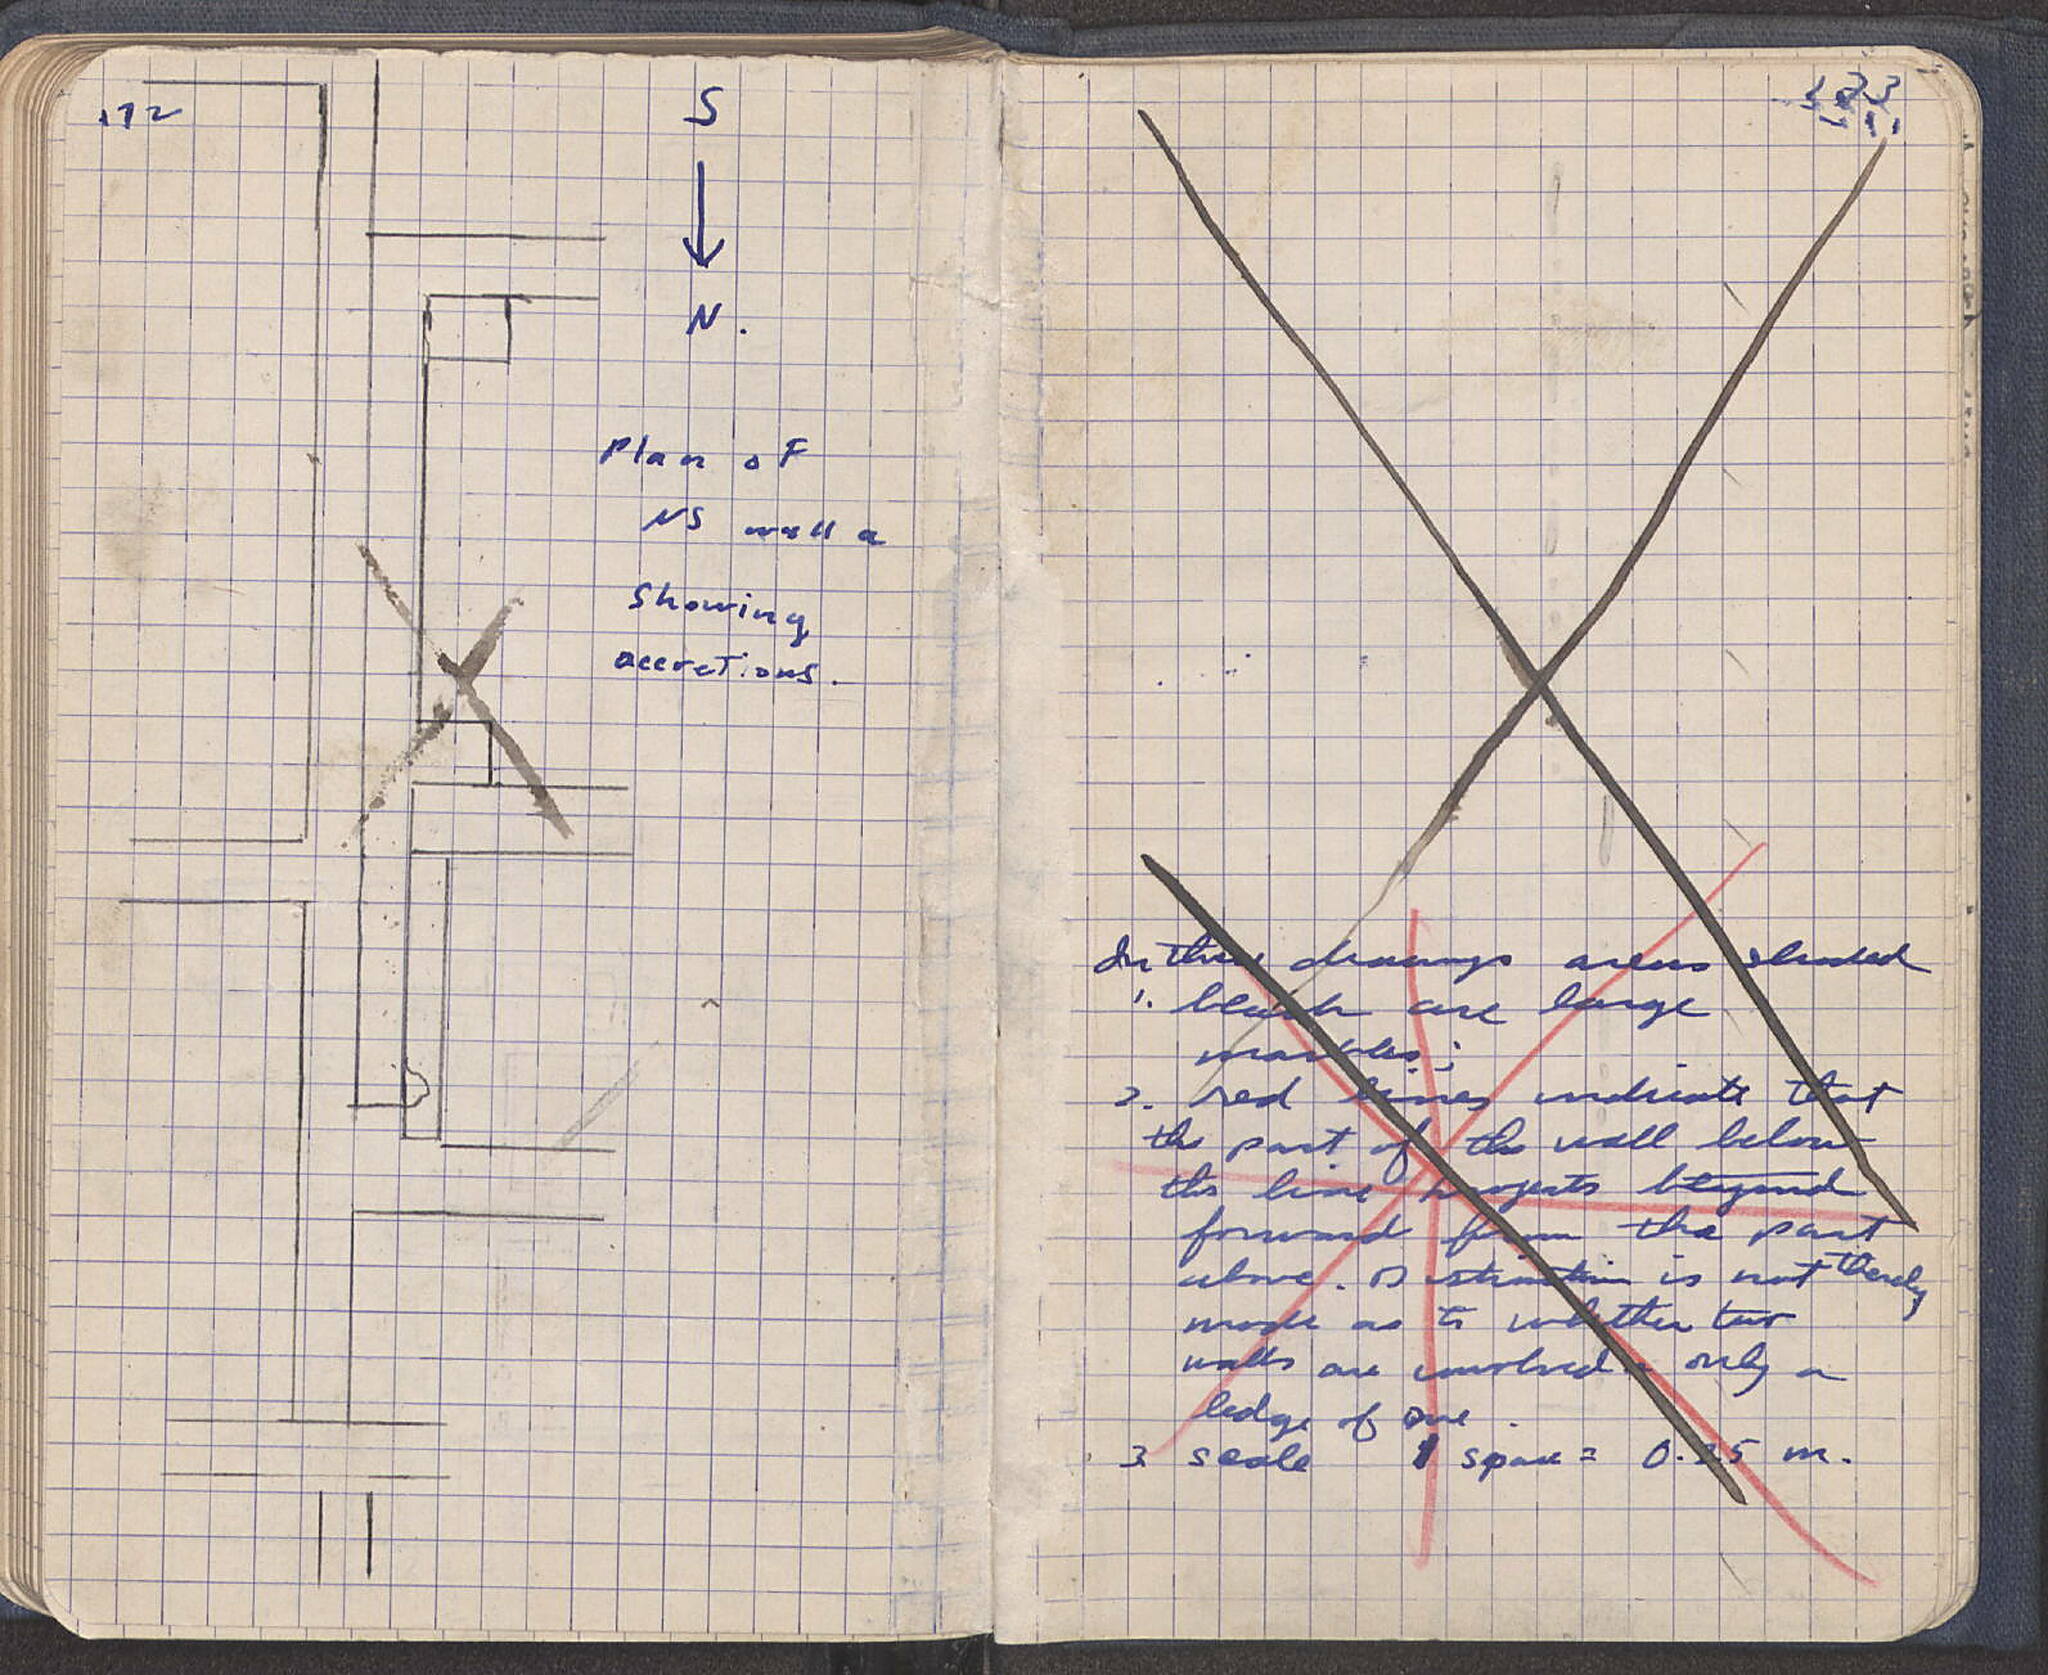 172
S
N.
Plan of
NS wall a
showing
accretions.
In these drawings areas shaded
1. black are large
marbles;
2. red lines indicate that
the part of the wall below
the line projects beyond
forward from the part
above. Distinction is not thereby
made as to whether two
walls are involved or only a
ledge of one.
3. scale 1 space = 0.25 m.